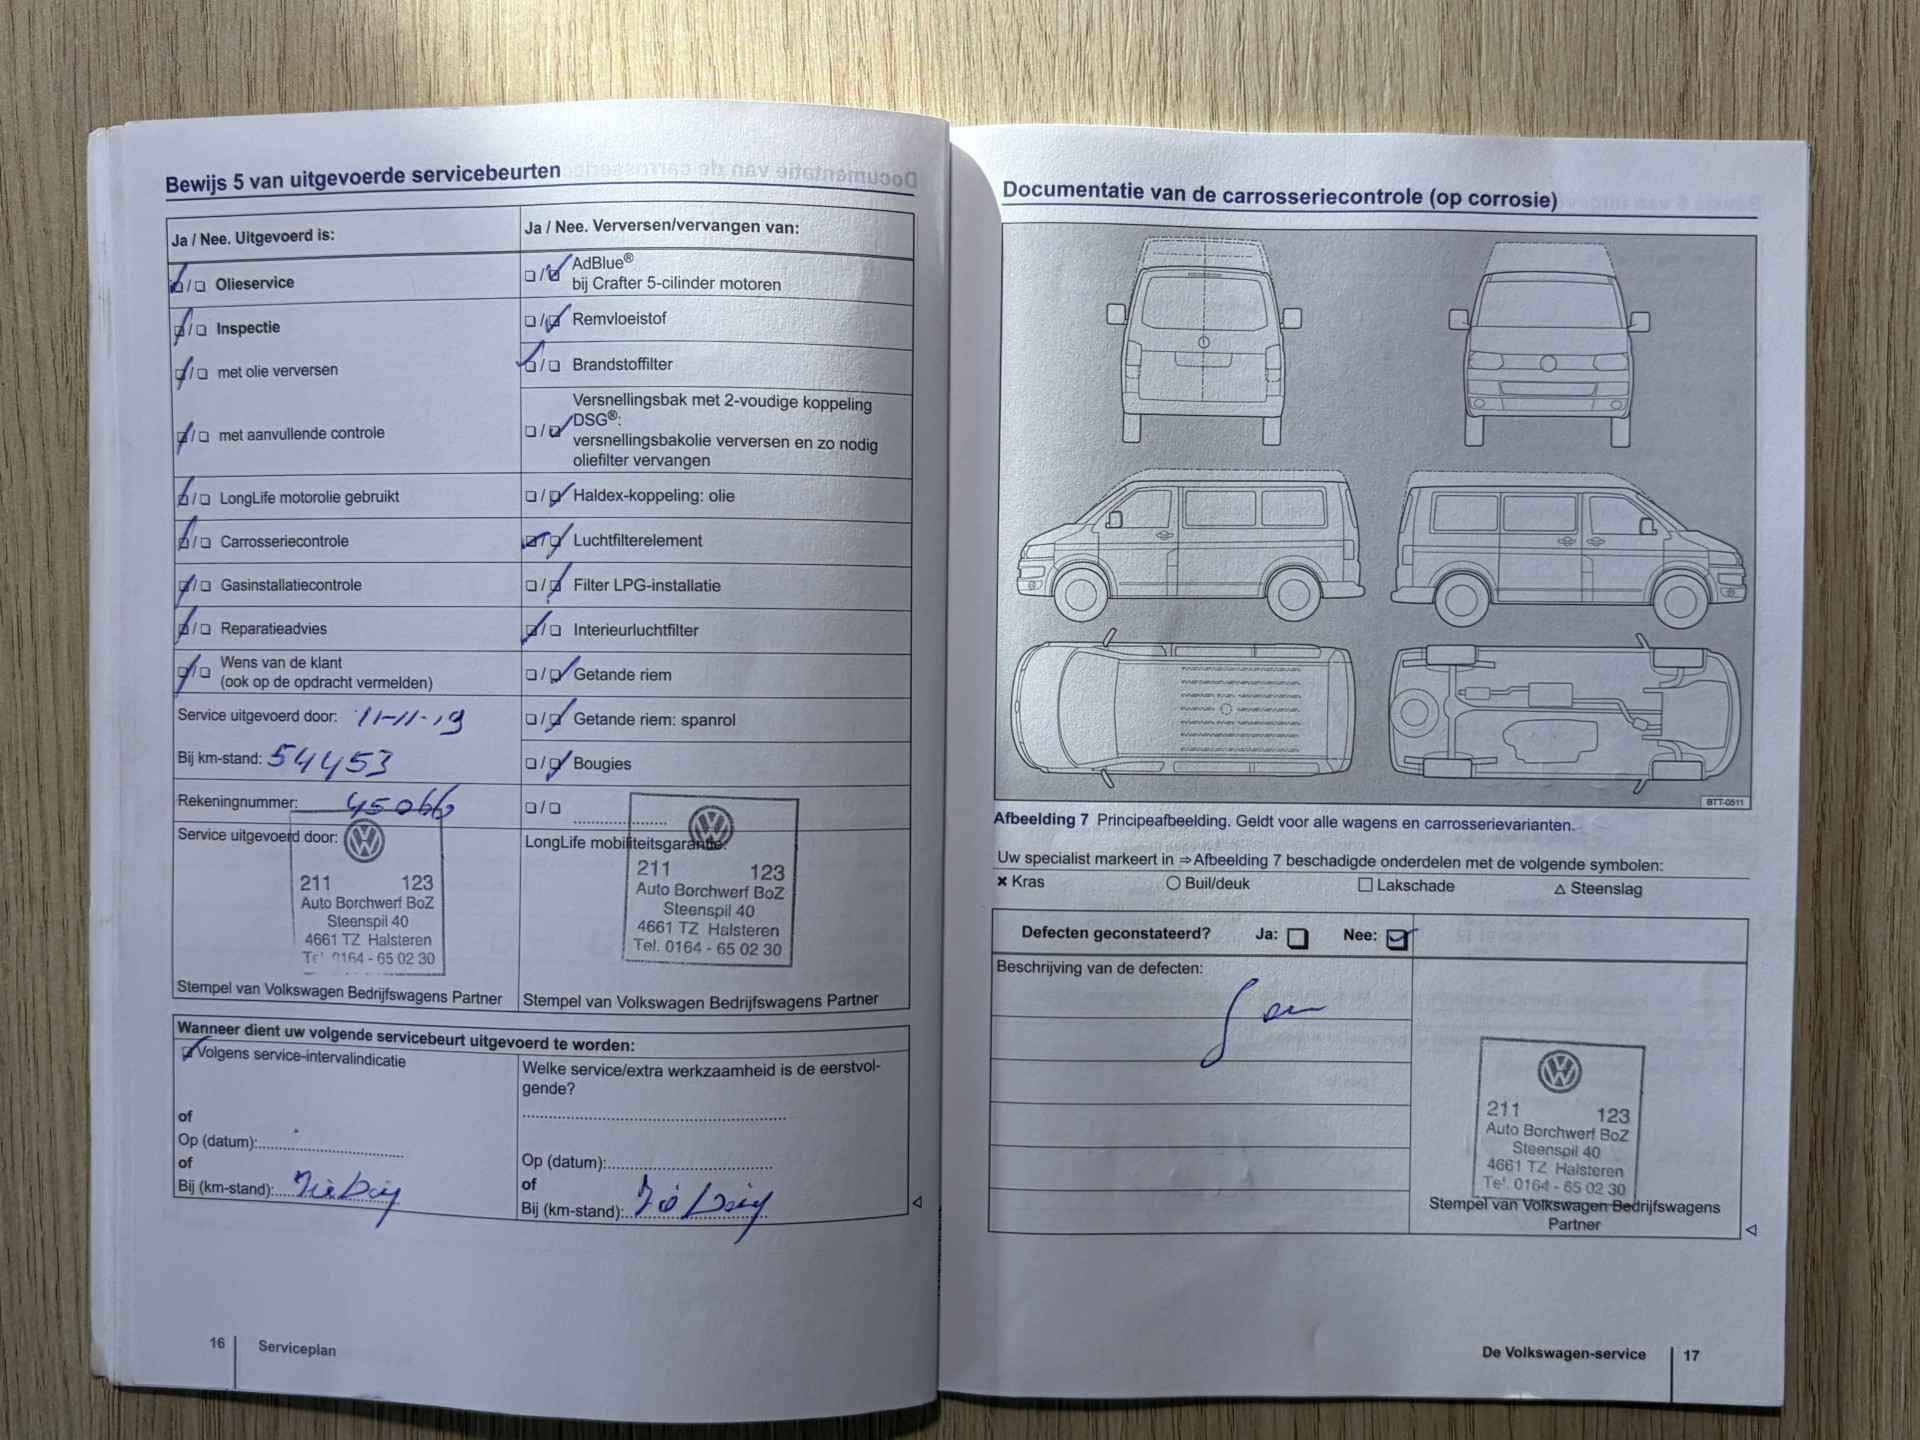 Bewijs 5 van uitgevoerde servicebeurten
Ja / Nee. Uitgevoerd is:
Olieservice
Inspectie
met olie verversen
met aanvullende controle
LongLife motorolie gebruikt
Carrosseriecontrole
Gasinstallatiecontrole
Reparatieadvies
Wens van de klant
(ook op de opdracht vermelden)
Service uitgevoerd door: 11-11-19
Bij km-stand: 54453
Rekeningnummer: 45066
Service uitgevoerd door:
211 123
Auto Borchwerf BoZ
Steenspil 40
4661 TZ Halsteren
Tel. 0164 - 65 02 30
Stempel van Volkswagen Bedrijfswagens Partner
Ja / Nee. Verversen/vervangen van:
AdBlue®
bij Crafter 5-cilinder motoren
Remvloeistof
Brandstoffilter
Versnellingsbak met 2-voudige koppeling
DSG®:
versnellingsbakolie verversen en zo nodig
oliefilter vervangen
Haldex-koppeling: olie
Luchtfilterelement
Filter LPG-installatie
Interieurluchtfilter
Getande riem
Getande riem: spanrol
Bougies
LongLife mobiliteitsgarantie:
211 123
Auto Borchwerf BoZ
Steenspil 40
4661 TZ Halsteren
Tel. 0164 - 65 02 30
Stempel van Volkswagen Bedrijfswagens Partner
Wanneer dient uw volgende servicebeurt uitgevoerd te worden:
Volgens service-intervalindicatie
of
Op (datum):
of
Bij (km-stand):
Welke service/extra werkzaamheid is de eerstvol-
gende?
Op (datum):
of
Bij (km-stand):
16 Serviceplan
Documentatie van de carrosseriecontrole (op corrosie)
BTT-0511
Afbeelding 7 Principeafbeelding. Geldt voor alle wagens en carrosserievarianten.
Uw specialist markeert in ⇒Afbeelding 7 beschadigde onderdelen met de volgende symbolen:
Kras Buil/deuk Lakschade Steenslag
Defecten geconstateerd? Ja: Nee:
Beschrijving van de defecten:
211 123
Auto Borchwerf BoZ
Steenspil 40
4661 TZ Halsteren
Tel. 0164 - 65 02 30
Stempel van Volkswagen Bedrijfswagens
Partner
De Volkswagen-service 17